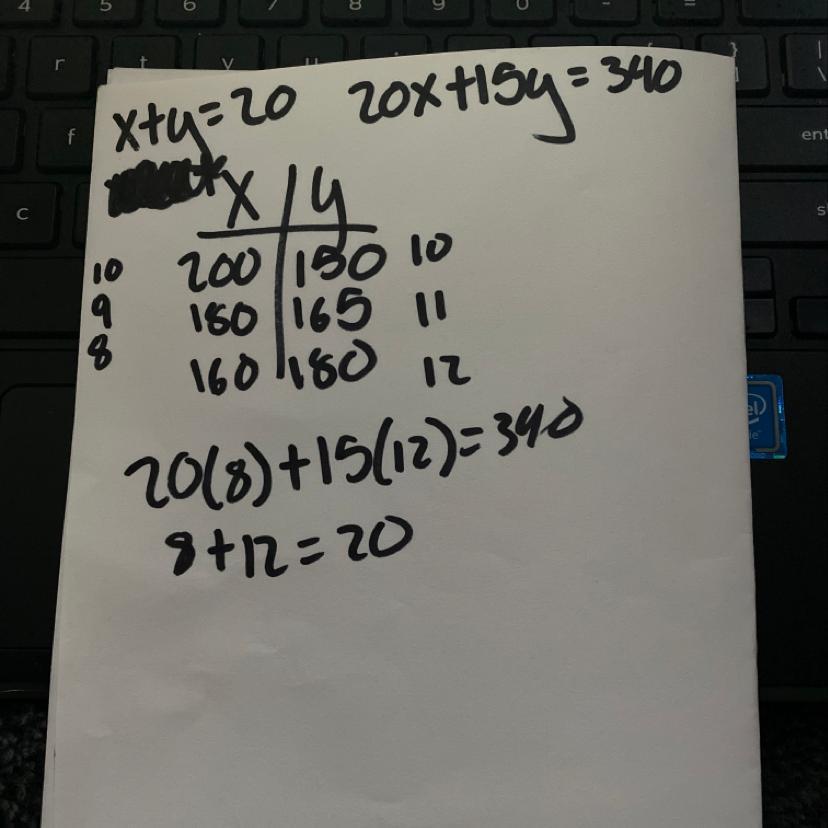 x+y=20 20x+15y=340
x y
10 200 150 10
9 180 165 11
8 160 180 12
20(8)+15(12)=340
8+12=20